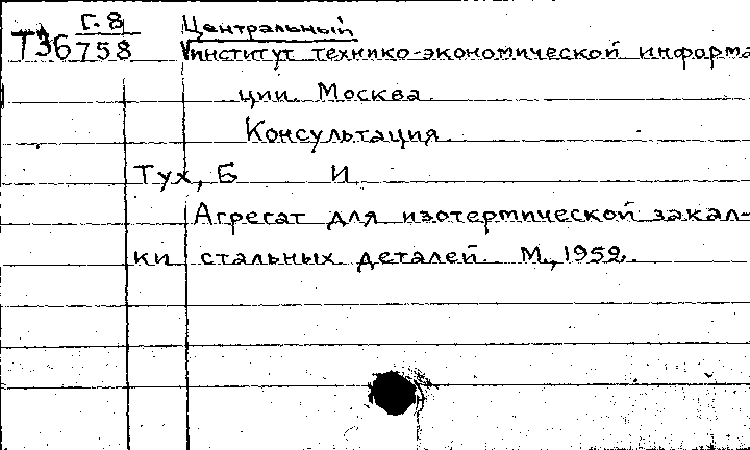 Г. 8 Центральный
Т36 758 институт технико-экономической информа
ции. Москва.
Консультация.
Тух, Б И.
Агрегат для изотермической закал-
ки стальных деталей. М., 1959.